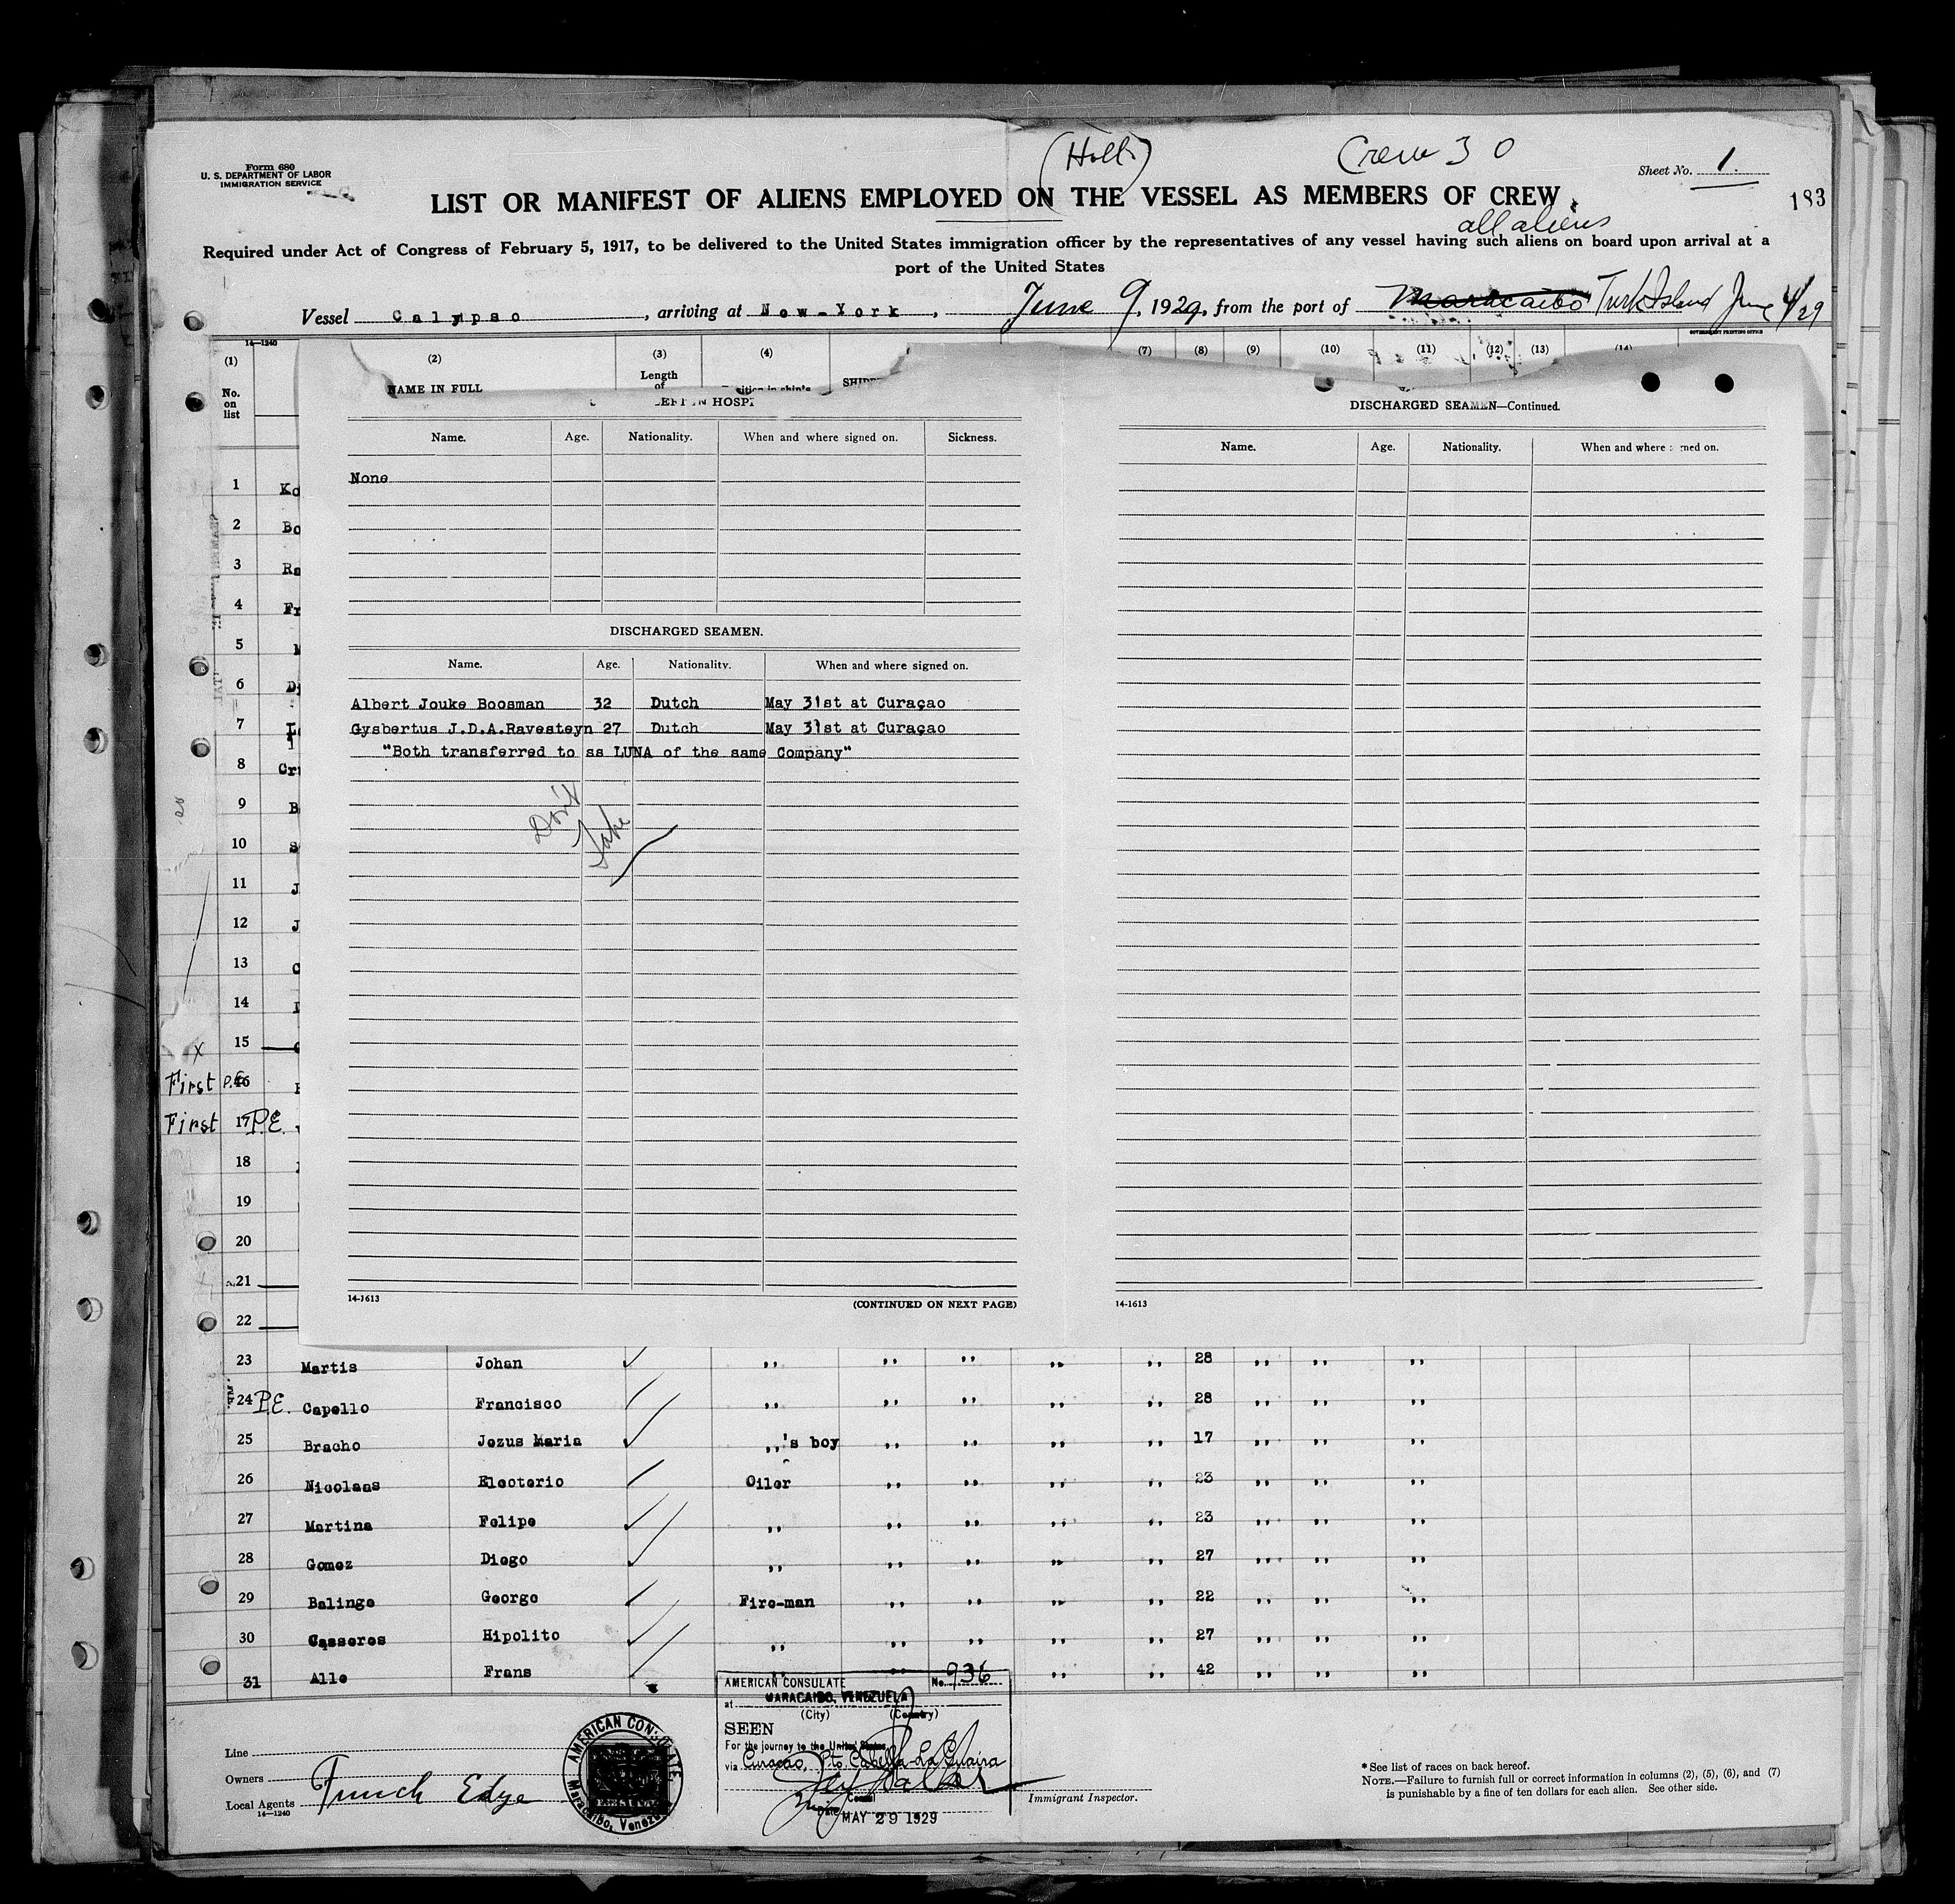 Form 680
U. S. DEPARTMENT OF LABOR
IMMIGRATION SERVICE
(Holl.)
Crew 30
Sheet No. 1.
LIST OR MANIFEST OF ALIENS EMPLOYED ON THE VESSEL AS MEMBERS OF CREW
183
all aliens
Required under Act of Congress of February 5, 1917, to be delivered to the United States immigration officer by the representatives of any vessel having such aliens on board upon arrival at a
port of the United States
Vessel Calypso, arriving at New-York, June 9, 1929, from the port of Maracaibo Turk Island June 4/29
14—1240
GOVERNMENT PRINTING OFFICE
(1) (2) (3) (4) (7) (8) (9) (10) (11) (12) (13) (14)
No. on list
NAME IN FULL
Length of
LEFT IN HOSPI
Name. Age. Nationality. When and where signed on. Sickness.
None
DISCHARGED SEAMEN.
Name. Age. Nationality. When and where signed on.
Albert Jouke Boosman 32 Dutch May 31st at Curaçao
Gysbertus J.D.A.Ravesteyn 27 Dutch May 31st at Curaçao
"Both transferred to ss LUNA of the same Company"
Don't
take
14-1613
(CONTINUED ON NEXT PAGE)
DISCHARGED SEAMEN—Continued.
Name. Age. Nationality. When and where signed on.
14-1613
1 Ko
2 Bo
3 Ra
4 Fr
5
6 Di
7
8 Cru
9 B
10 S
11 J
12 J
13 C
14
x 15
First P.E. 16
First 17 P.E.
18
19
20
21
22
23 Martis Johan ,, ,, ,, ,, ,, 28 ,, ,, ,,
24 P.E. Capello Francisco ,, ,, ,, ,, ,, 28 ,, ,, ,,
25 Bracho Jezus Maria ,,'s boy ,, ,, ,, ,, 17 ,, ,, ,,
26 Nicolaas Eleoterio Oiler ,, ,, ,, ,, 23 ,, ,, ,,
27 Martina Felipe ,, ,, ,, ,, ,, 23 ,, ,, ,,
28 Gomez Diego ,, ,, ,, ,, ,, 27 ,, ,, ,,
29 Balinge George Fire-man ,, ,, ,, ,, 22 ,, ,, ,,
30 Casseres Hipolito ,, ,, ,, ,, ,, 27 ,, ,, ,,
31 Alle Frans ,, ,, ,, ,, 42 ,, ,, ,,
AMERICAN CONSULATE No. 936
at MARACAIBO, VENEZUELA
(City) (Country)
SEEN
For the journey to the United States,
via Curaçao, Pto Cabello-La Guaira
Consul
Date MAY 29 1929
AMERICAN CONSULATE
Maracaibo, Venezuela
Line
Owners
Local Agents Funch Edye
14—1240
Immigrant Inspector.
* See list of races on back hereof.
NOTE.—Failure to furnish full or correct information in columns (2), (5), (6), and (7)
is punishable by a fine of ten dollars for each alien. See other side.